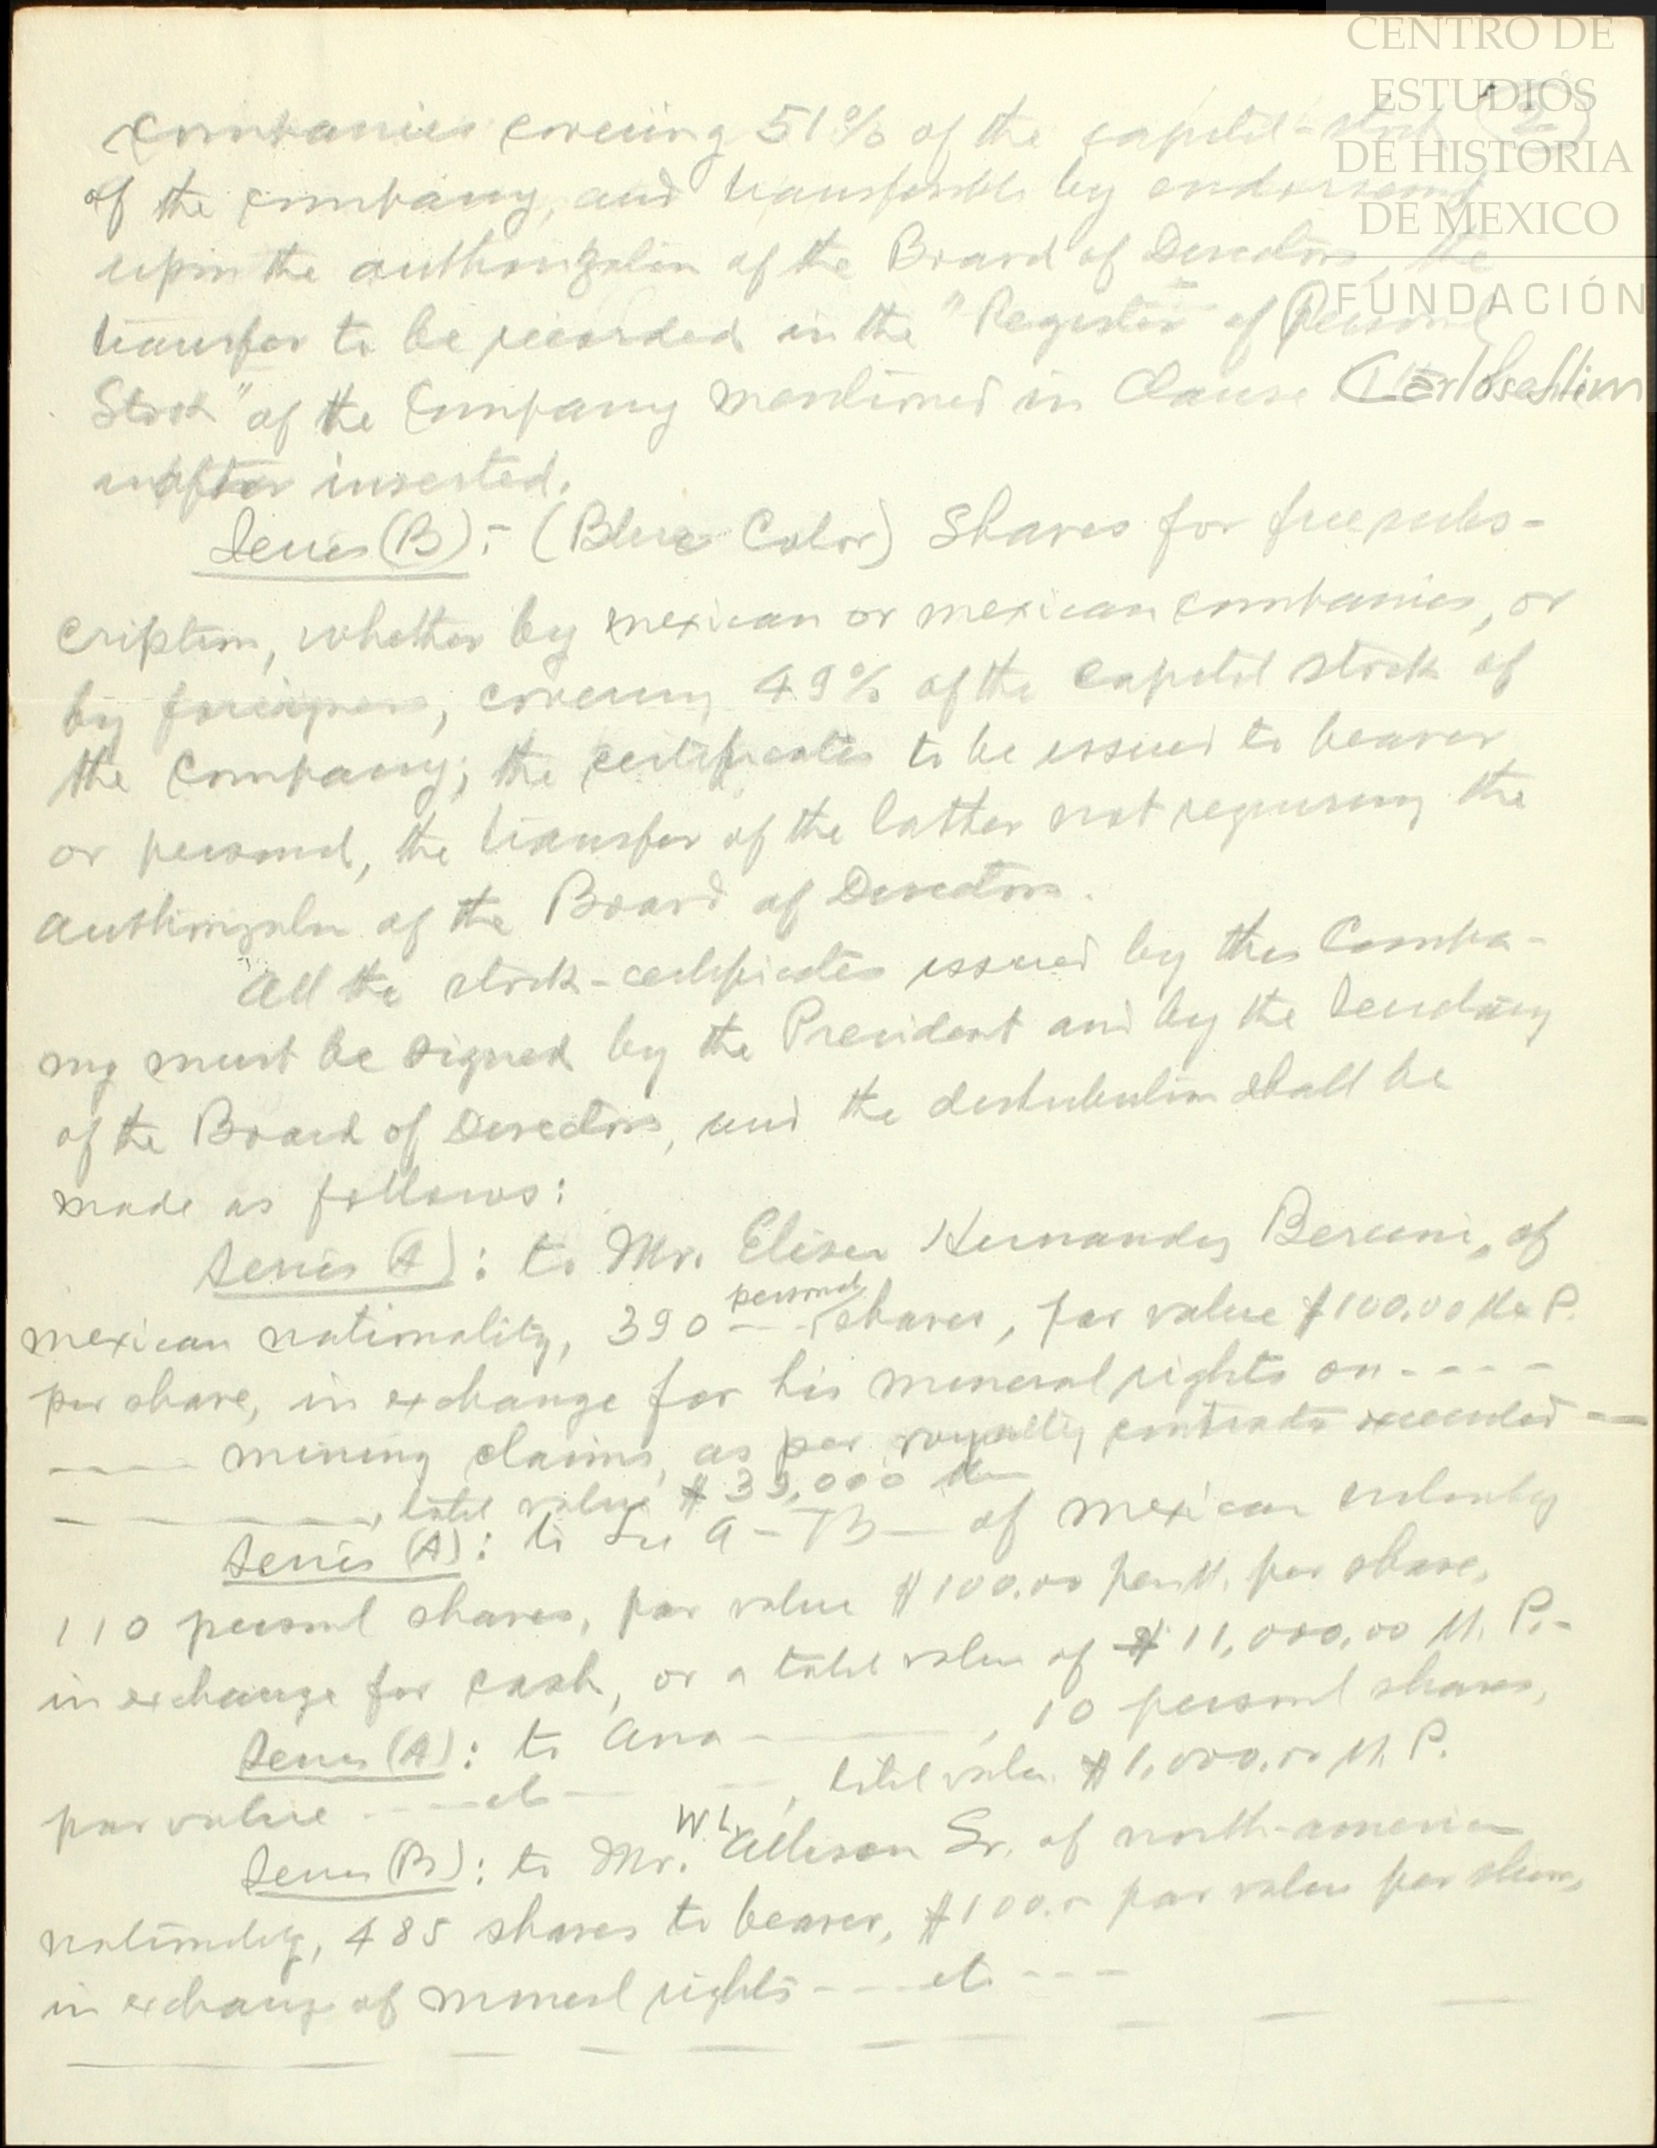 CENTRO DE
ESTUDIOS
DE HISTORIA
DE MEXICO
FUNDACIÓN
Carlos Slim
(2)
companies covering 51% of the capital-stock
of the company, and transferable by endorsement
upon the authorization of the Board of Directors, the
transfer to be recorded in the "Register of Personal
Stock" of the Company mentioned in Clause
inserted.
Series (B):- (Blue Color) Shares for free subs-
cription, whether by mexican or mexican companies, or
by foreigners, covering 49% of the capital stock of
the company; the certificates to be issued to bearer
or personal, the transfer of the latter not requiring the
authorization of the Board of Directors.
All the stock-certificates issued by the Compa-
ny must be signed by the President and by the Secretary
of the Board of Directors, and the distribution shall be
made as follows:
Series (A): to Mr. Eliseo Hernandez , of
mexican nationality, 390 personal shares, par value $100.00 Mex P.
per share, in exchange for his mineral rights on - - - -
- - - mining claims, as per royalty contracts executed - -
- - - - - , total value $39,000 Mex
Series (A): to A - B - of mexican
110 personal shares, par value $100.00 per share,
in exchange for cash, or a total value of $11,000.00 M. P.-
Series (A): to Ana - - - , 10 personal shares,
par value - - - etc - - - , total value $1,000.00 M. P.
Series (B): to Mr. W. L. Allison Sr. of north-american
nationality, 485 shares to bearer, $100.00 par value per share,
in exchange of mineral rights - - - etc - - -